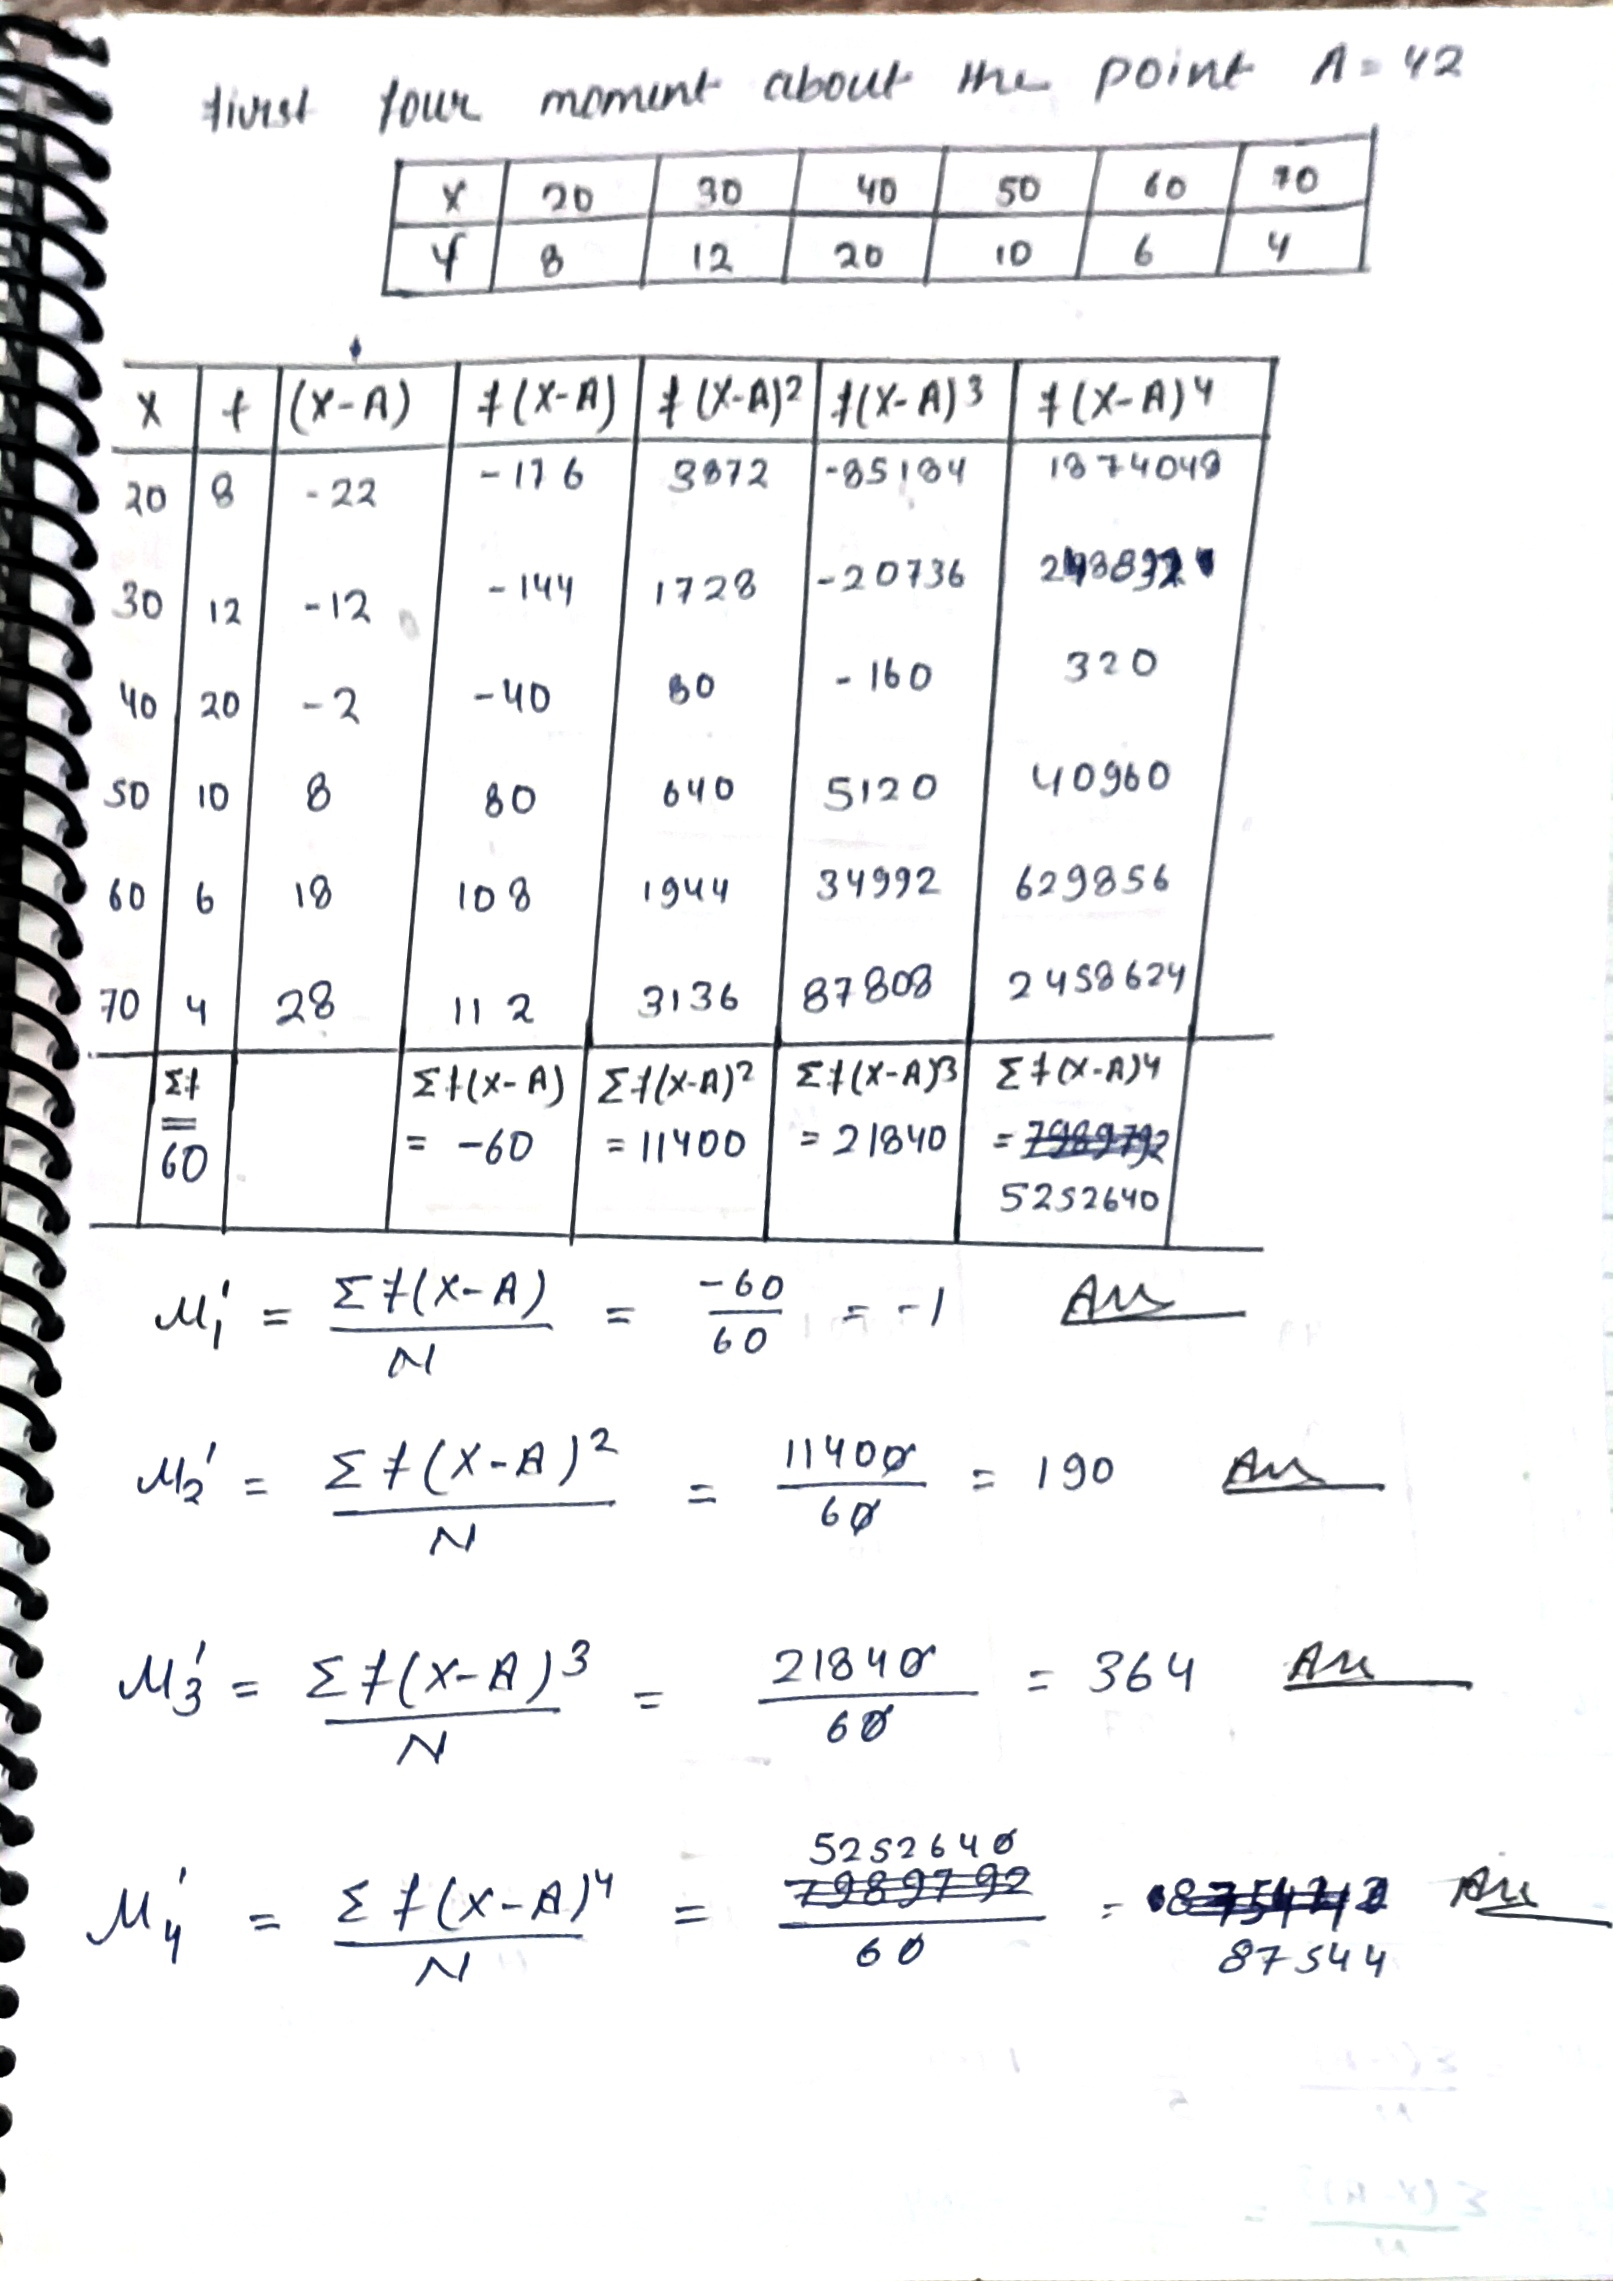 first four moment about the point A = 42
X 20 30 40 50 60 70
f 8 12 20 10 6 4
X f (X-A) f(X-A) f(X-A)2 f(X-A)3 f(X-A)4
20 8 -22 -176 3872 -85184 1874048
30 12 -12 -144 1728 -20736
40 20 -2 -40 80 -160 320
50 10 8 80 640 5120 40960
60 6 18 108 1944 34992 629856
70 4 28 112 3136 87808 2458624
Σf Σf(X-A) Σf(X-A)2 Σf(X-A)3 Σf(X-A)4
= 60 = -60 = 11400 = 21840 = 7989792
5252640
M1' = Σf(X-A) / N = -60 / 60 = -1 Ans
M2' = Σf(X-A)2 / N = 11400 / 60 = 190 Ans
M3' = Σf(X-A)3 / N = 21840 / 60 = 364 Ans
M4' = Σf(X-A)4 / N = 5252640 7989792 / 60 = 87544 Ans